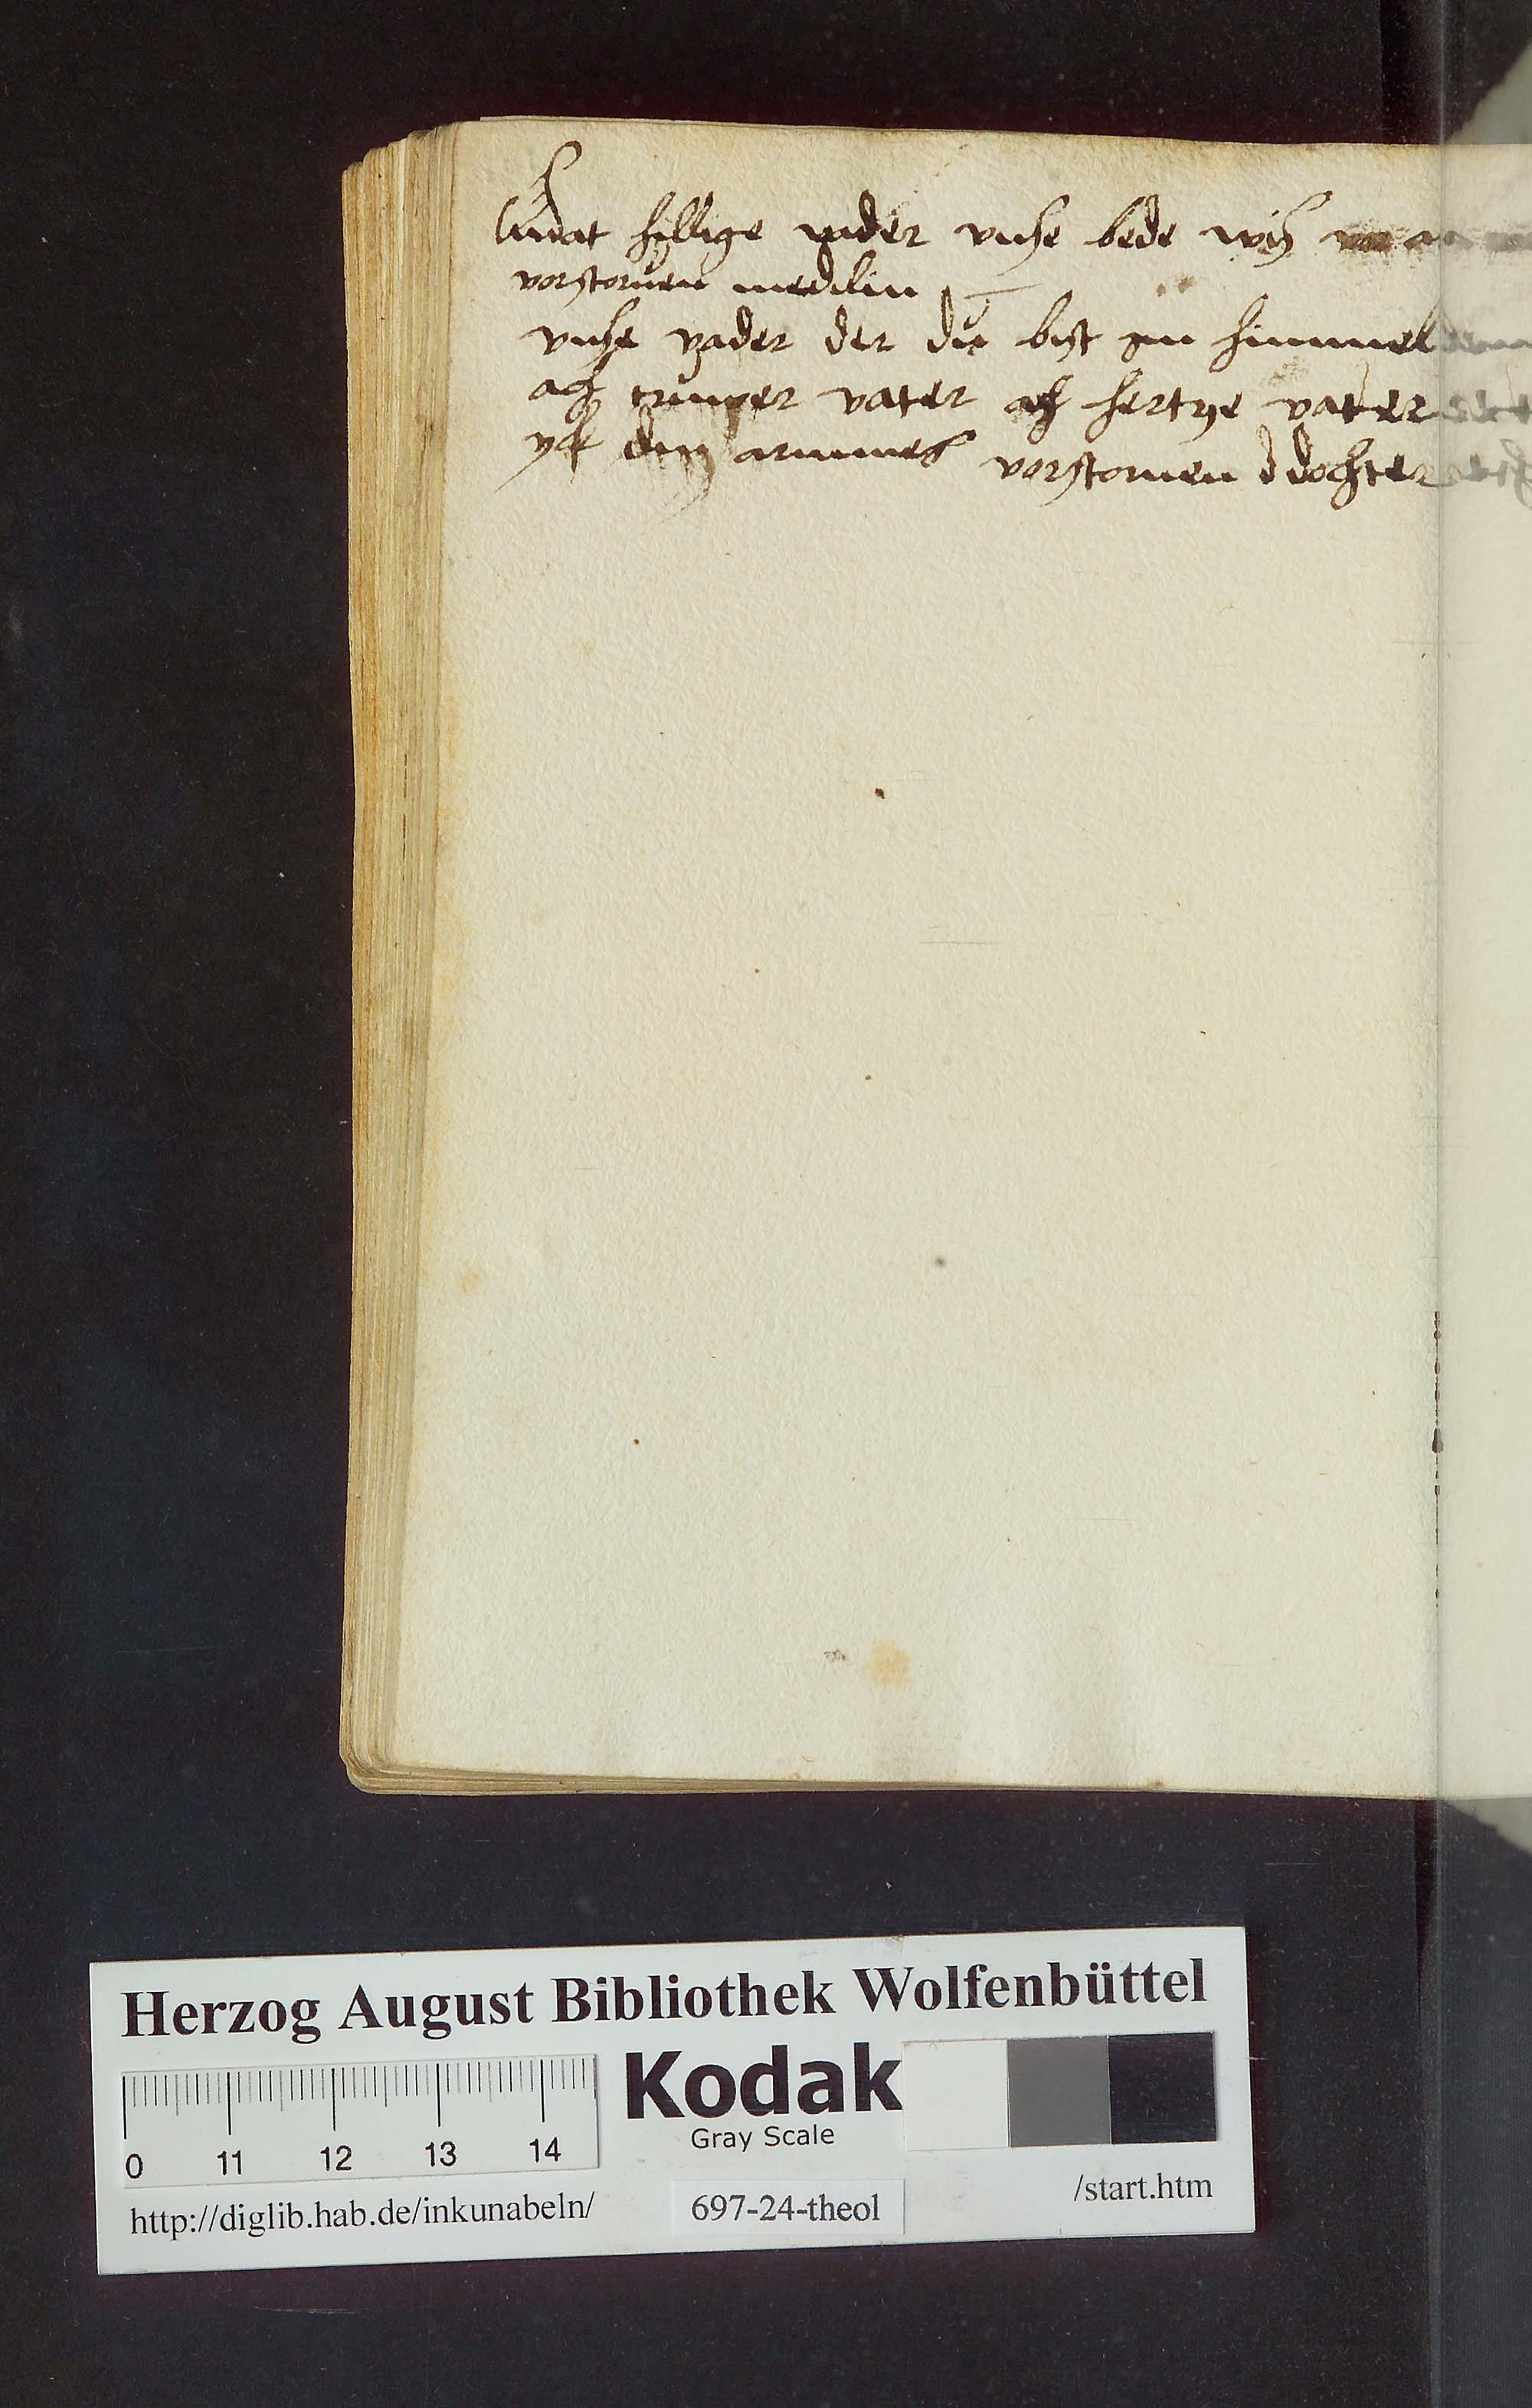 hillige vader vnse bede wy
vorstoruen medelin
vnse vader der du bist ym himmel
ach truwer vater ach hertze vater
yk dyn armmes vorstoruen dochter
Herzog August Bibliothek Wolfenbüttel
Kodak
Gray Scale
0 11 12 13 14
http://diglib.hab.de/inkunabeln/ 697-24-theol /start.htm